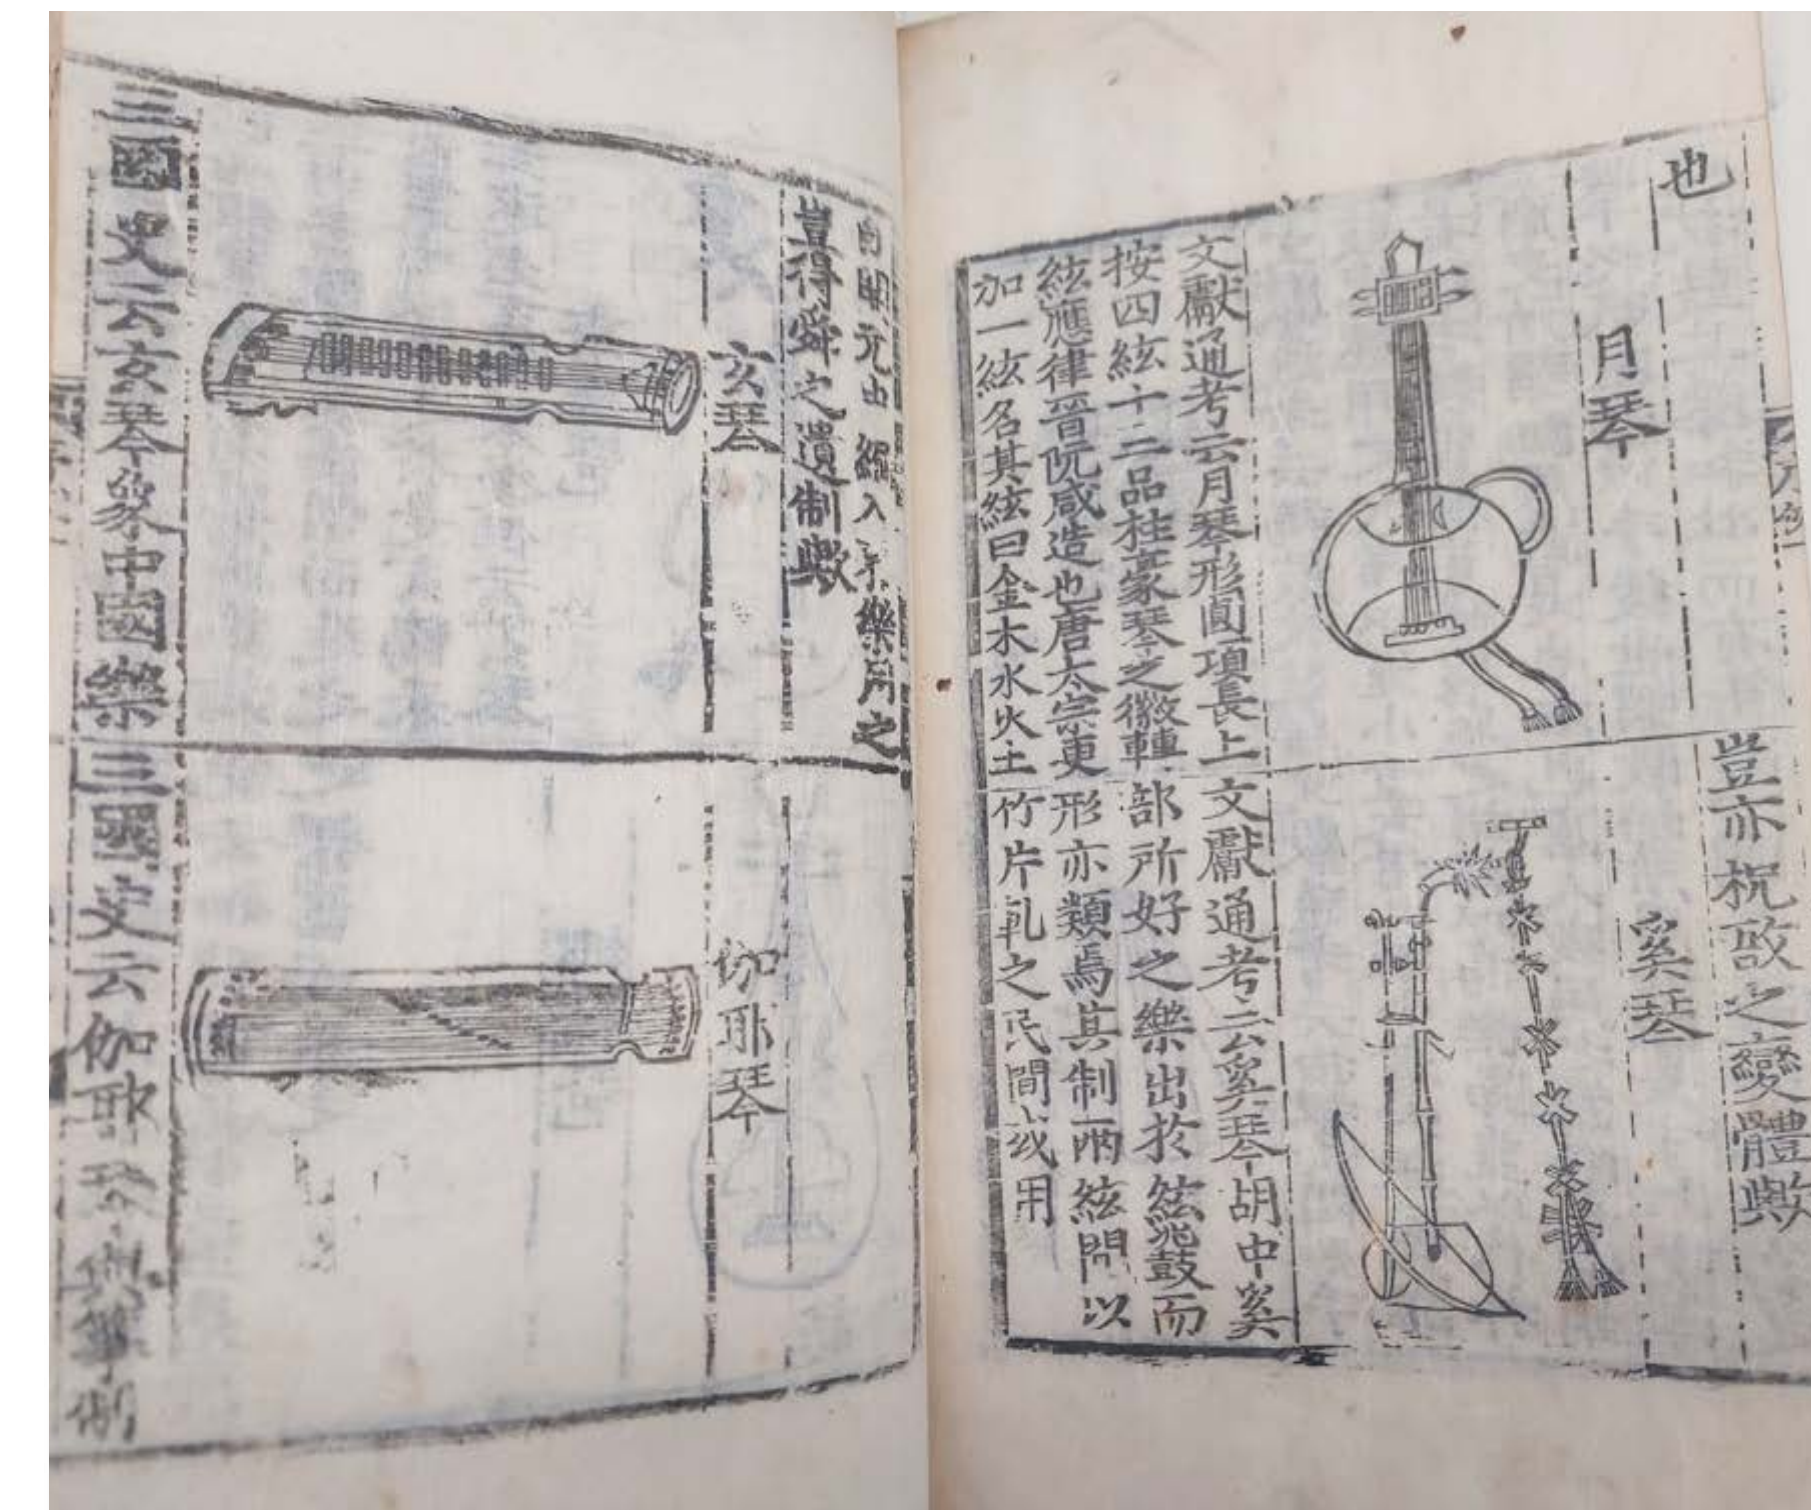 也
月琴
文獻通考云月琴形圓項長上
按四絃十二品柱豪琴之徽轉
絃應律晉阮咸造也唐太宗更
加一絃名其絃曰金木水火土
豈亦柷敔之變體歟
奚琴
文獻通考云奚琴胡中奚
部所好之樂出於絃鼗而
形亦類焉其制兩絃間以
竹片軋之民間或用
自開元 編入 樂用之
豈得舜之遺制歟
玄琴
三國史云玄琴象中國樂
伽耶琴
三國史云伽耶琴與箏